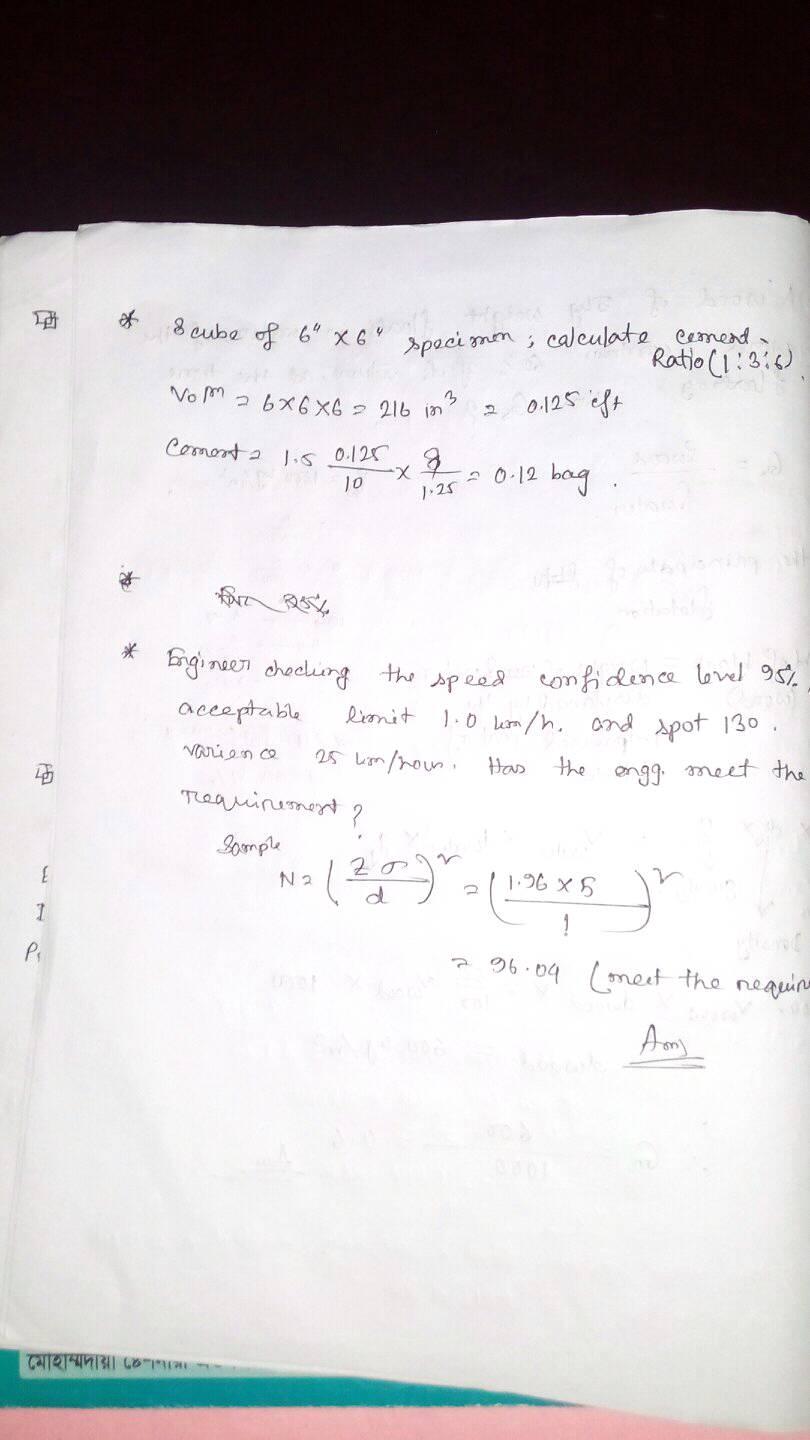 * 8 cube of 6" × 6" specimen; calculate cement.
Ratio (1:3:6)
Volm = 6×6×6 = 216 in³ = 0.125 cft
Cement = 1.5 0.125/10 × 8/1.25 = 0.12 bag.
*
* Engineer checking the speed confidence level 95%,
acceptable limit 1.0 km/h. and spot 130.
varience 25 km/hour. Has the engg. meet the
requirement?
Sample
N = (Zσ/d)² = (1.96 × 5/1)²
= 96.04 (meet the requir
Ans